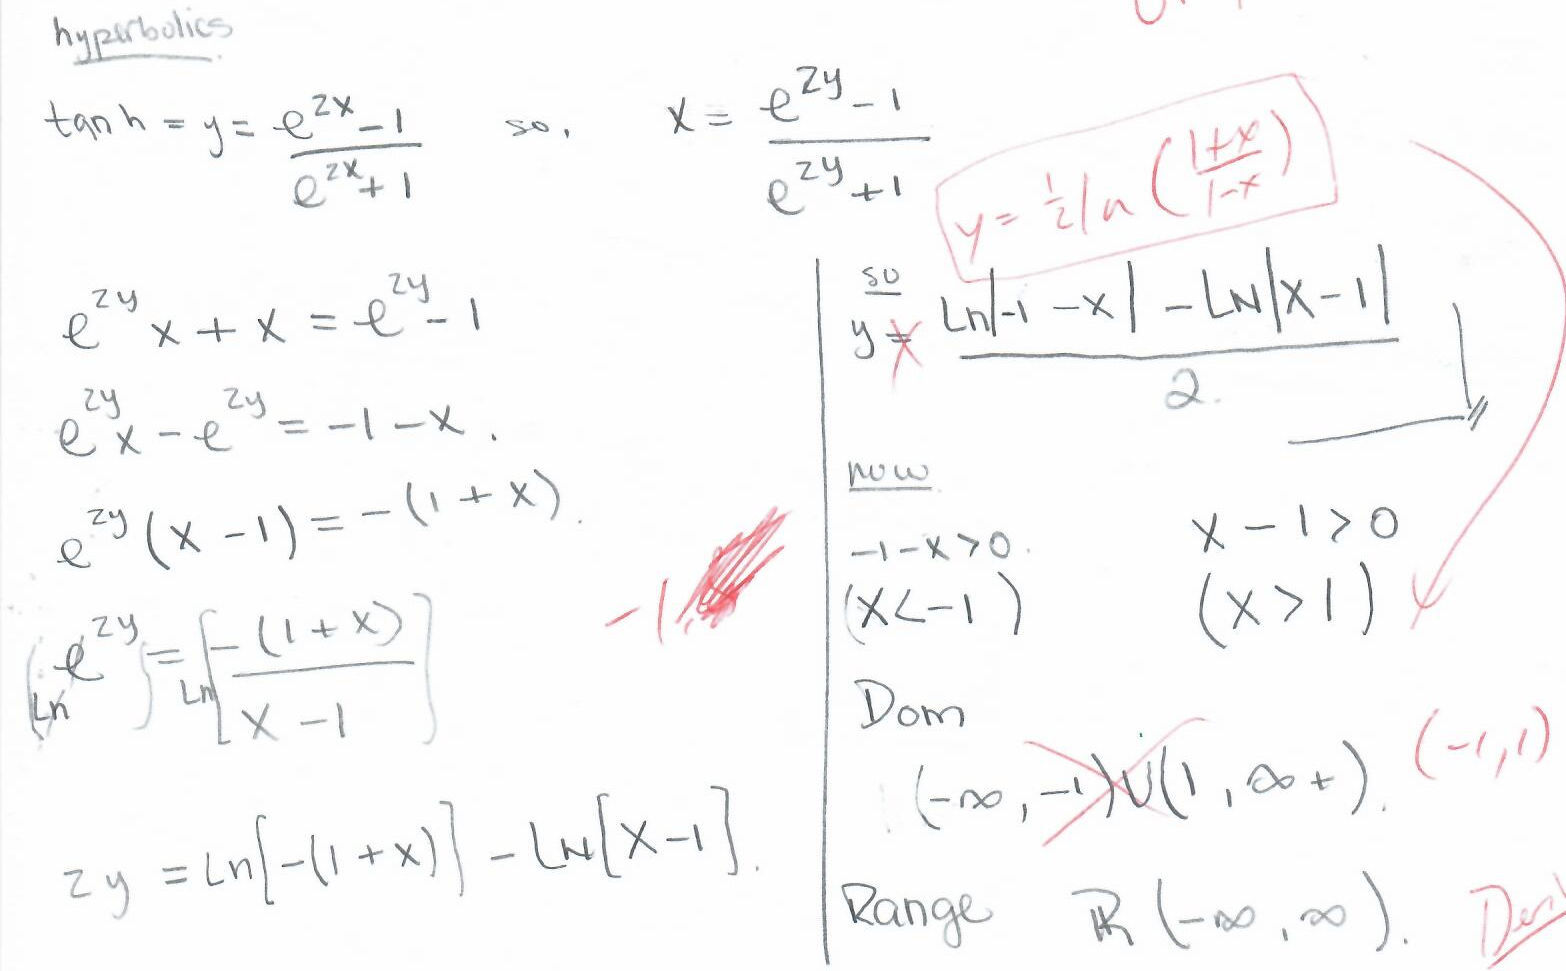 hyperbolics
tanh = y = (e^{2x} - 1)/(e^{2x} + 1) so, x = (e^{2y} - 1)/(e^{2y} + 1)
e^{2y} x + x = e^{2y} - 1
e^{2y} x - e^{2y} = -1 - x.
e^{2y} (x - 1) = -(1 + x).
Ln(e^{2y}) = Ln[-(1 + x)/(x - 1)]
2y = Ln[-(1 + x)] - LN[x - 1].
-1
y = 1/2 ln((1+x)/(1-x))
so
y = (Ln|-1 - x| - LN|x - 1|)/2.
now
-1 - x > 0. x - 1 > 0
(x < -1) (x > 1)
Dom
(-∞, -1) ∪ (1, ∞+). (-1, 1)
Range ℝ (-∞, ∞).